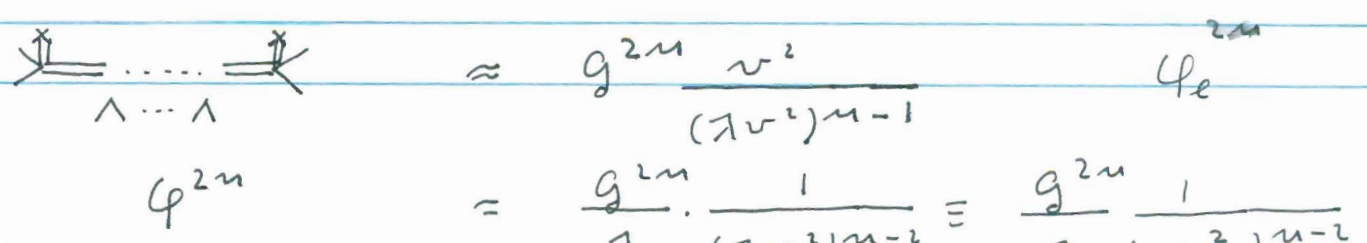 ≈ g^{2n} \frac{v^2}{(λv^2)^{n-1}} φ_e^{2n}
∧ ... ∧
φ^{2n} = \frac{g^{2n}}{λ} · \frac{1}{(λv^2)^{n-2}} ≡ \frac{g^{2n}}{} \frac{1}{( ^2)^{n-2}}